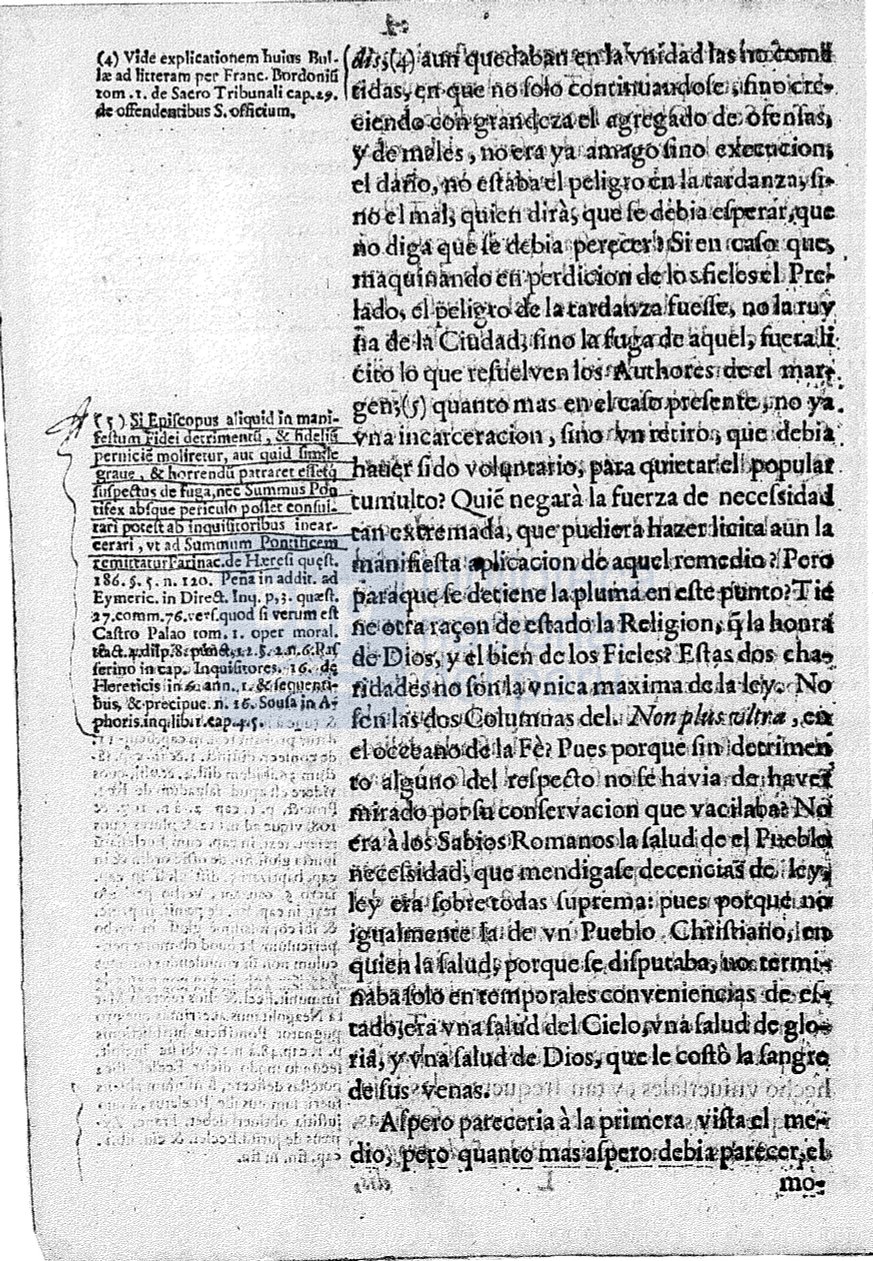 (4) Vide explicationem huius Bul-
læ ad litteram per Franc. Bordoniũ
tom. 1. de Sacro Tribunali cap. 29.
de offendentibus S. officium.
diss,(4) aun quedaban en la vnidad las no come
tidas, en que no solo continuandose, sino cre-
ciendo con grandeza el agregado de ofensas,
y de males, no era ya amago sino execucion;
el daño, no estaba el peligro en la tardanza, si-
no el mal; quien dirà, que se debia esperar, que
no diga que se debia perecer? Si en caso que,
maquinando en perdicion de los fieles el Pre-
lado, el peligro de la tardanza fuesse, no la ruy
na de la Ciudad; sino la fuga de aquel, fuera li
cito lo que resuelven los Authores de el mar-
gen;(5) quanto mas en el caso presente, no ya
vna incarceracion, sino vn retiro, que debia
hauer sido voluntario, para quietar el popular
tumulto? Quiẽ negarà la fuerza de necessidad
tan extremada, que pudiera hazer licita aun la
manifiesta aplicacion de aquel remedio? Pero
paraque se detiene la pluma en este punto? Tie
ne otra raçon de estado la Religion, q̃ la honra
de Dios, y el bien de los Fieles? Estas dos cha-
ridades no son la vnica maxima de la ley. No
son las dos Columnas del. Non plus vltra, en
el occeano de la Fè? Pues porque sin detrimen
to alguno del respecto no se havia de haver
mirado por su conservacion que vacilaba? No
era à los Sabios Romanos la salud de el Pueblo
necessidad, que mendigase decencias de ley,
ley era sobre todas suprema: pues porque no
igualmente la de vn Pueblo Christiano, en
quien la salud, porque se disputaba, no termi-
naba solo en temporales conveniencias de es-
tado, era vna salud del Cielo, vna salud de glo-
ria, y vna salud de Dios, que le costò la sangre
de sus venas.
Aspero pareceria à la primera vista el me-
dio, pero quanto mas aspero debia parecer, el
mo-
(5) Si Episcopus aliquid in mani-
festum Fidei detrimentũ, & fideliũ
perniciẽ moliretur, aut quid simile
graue, & horrendũ patraret essetq̃
suspectus de fuga, nec Summus Pon
tifex absque periculo posset consul-
tari potest ab inquisitoribus incar-
cerari, vt ad Summum Pontificem
remittatur Farinac. de Hæresi quęst.
186. §. 5. n. 120. Pena in addit. ad
Eymeric. in Direct. Inq. p. 3. quæst.
27. comm. 76. vers. quod si verum est
Castro Palao tom. 1. oper moral.
tract. 4. disp. 8. punct. 12. §. 2. n. 6. Pas
serino in cap. Inquisitores. 16. de
Hereticis in 6. ann. 1. & sequenti-
bus, & precipue n. 16. Sousa in A-
phoris. inq. lib. 1. cap. 4. 5.